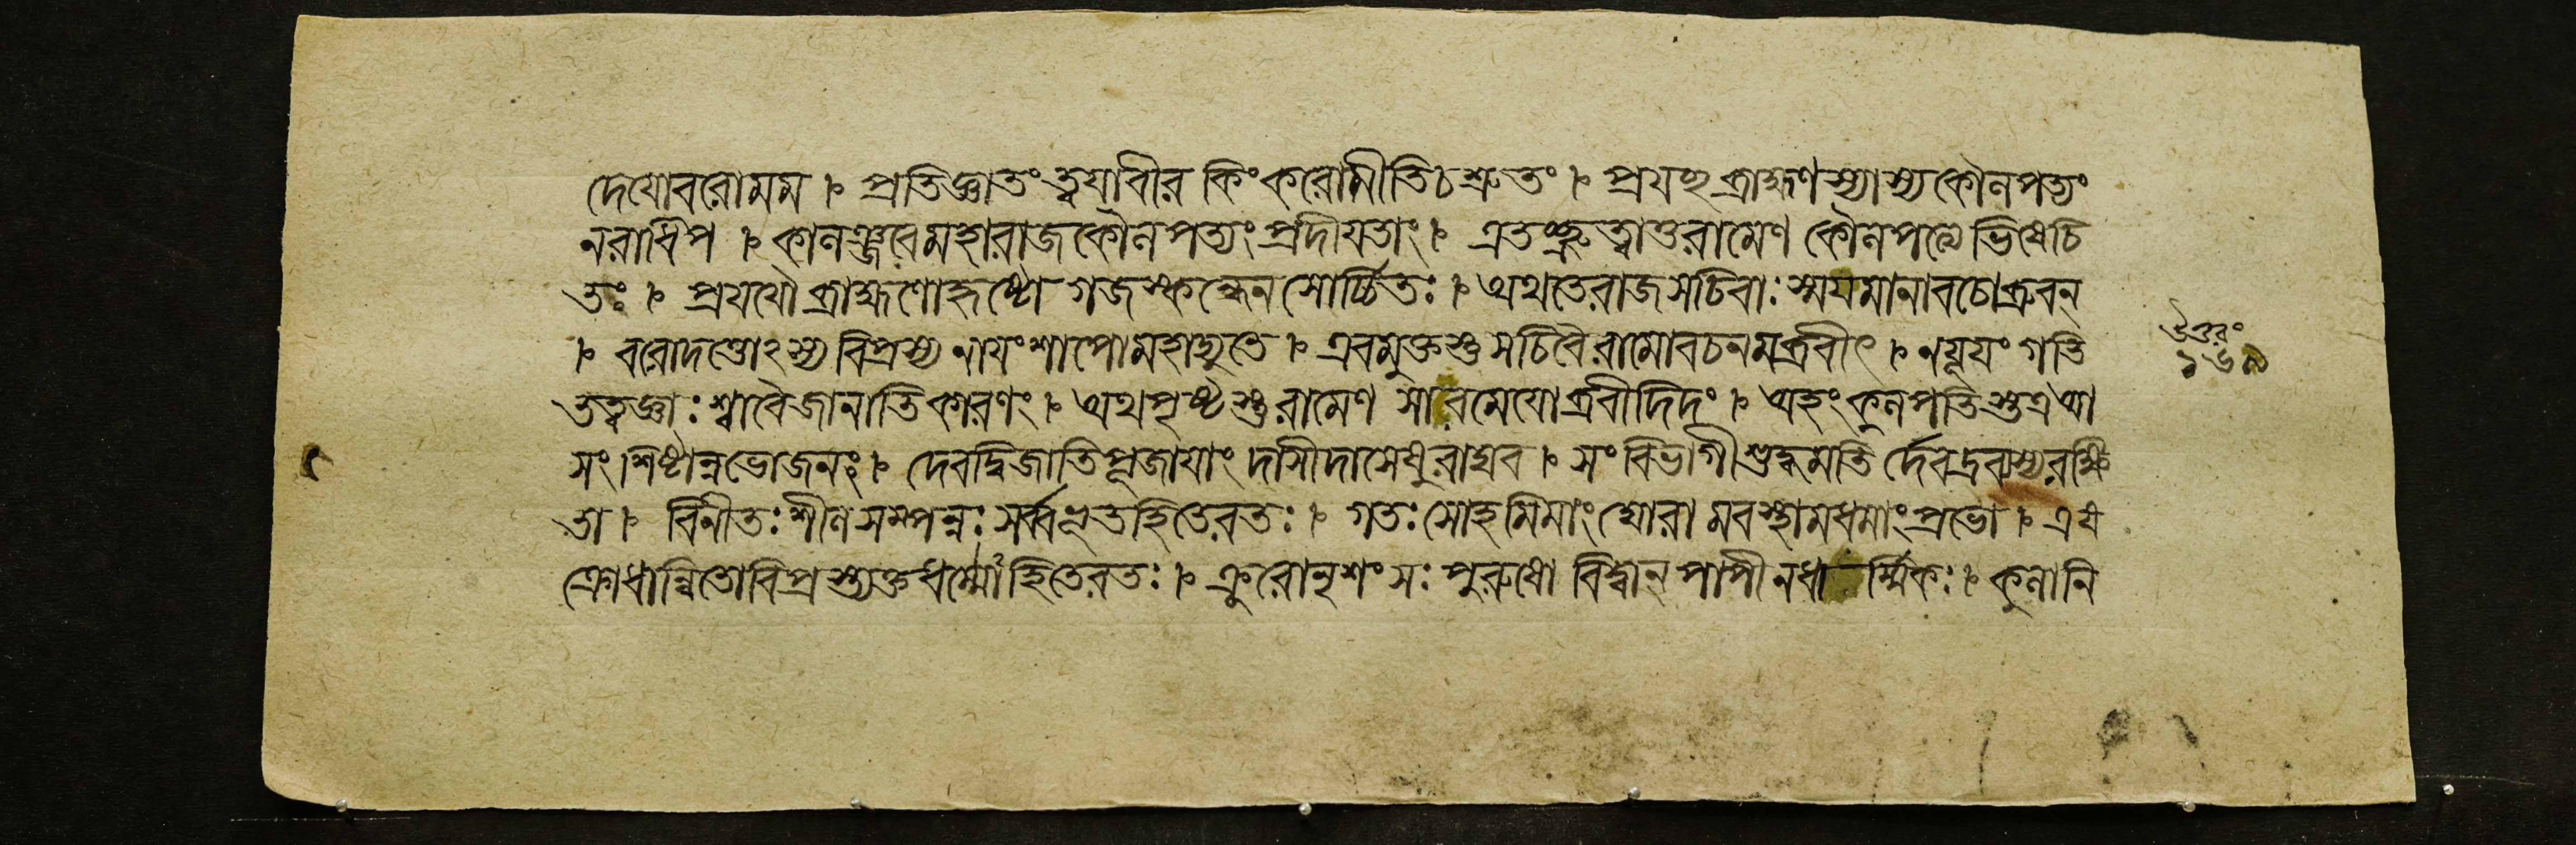 দেযোবরোমম । প্রতিজ্ঞাতং ত্বযাবীর কিংকরোমীতিচশ্রুতং । প্রযচ্ছ ব্রাহ্মণস্যাস্য কৌলপত্যং
নরাধিপ । কালঞ্জরেমহারাজকৌলপত্যংপ্রদীযতাং । এতচ্ছ্রুত্বাতুরামেণ কৌলপত্যেভিষেচি
তঃ । প্রযযৌ ব্রাহ্মণোহৃষ্টো গজস্কন্ধেনসোর্চ্চিতঃ । অথতেরাজসচিবাঃ স্মযমানাবচোব্রুবন্
। বরোদত্তোঽস্য বিপ্রস্য নাযংশাপোমহাদ্যুতে । এবমুক্তস্তু সচিবৈরামোবচনমব্রবীৎ । নযূযং গতি
তত্বজ্ঞাঃ শ্বাবৈজানাতি কারণং । অথপৃষ্টস্তু রামেণ সারমেযোব্রবীদিদং । অহংকুলপতিস্তত্রআ
সংশিষ্টান্নভোজনঃ । দেবদ্বিজাতিপূজাযাং দাসীদাসেষুরাঘব । সংবিভাগীশুদ্ধমতি র্দেবদ্রব্যস্যরক্ষি
তা । বিনীতঃ শীলসম্পন্নঃ সর্ব্বভূতহিতেরতঃ । গতঃ সোহমিমাংঘোরা মবস্থামধমাংপ্রভো । এবং
ক্রোধান্বিতোবিপ্রস্ত্যক্তধর্ম্মোহিতেরতঃ । ক্রুরোনৃশংসঃ পুরুষো বিদ্বান্ পাপীনধার্ম্মিকঃ । কুলানি
উত্তরং
১৬৯